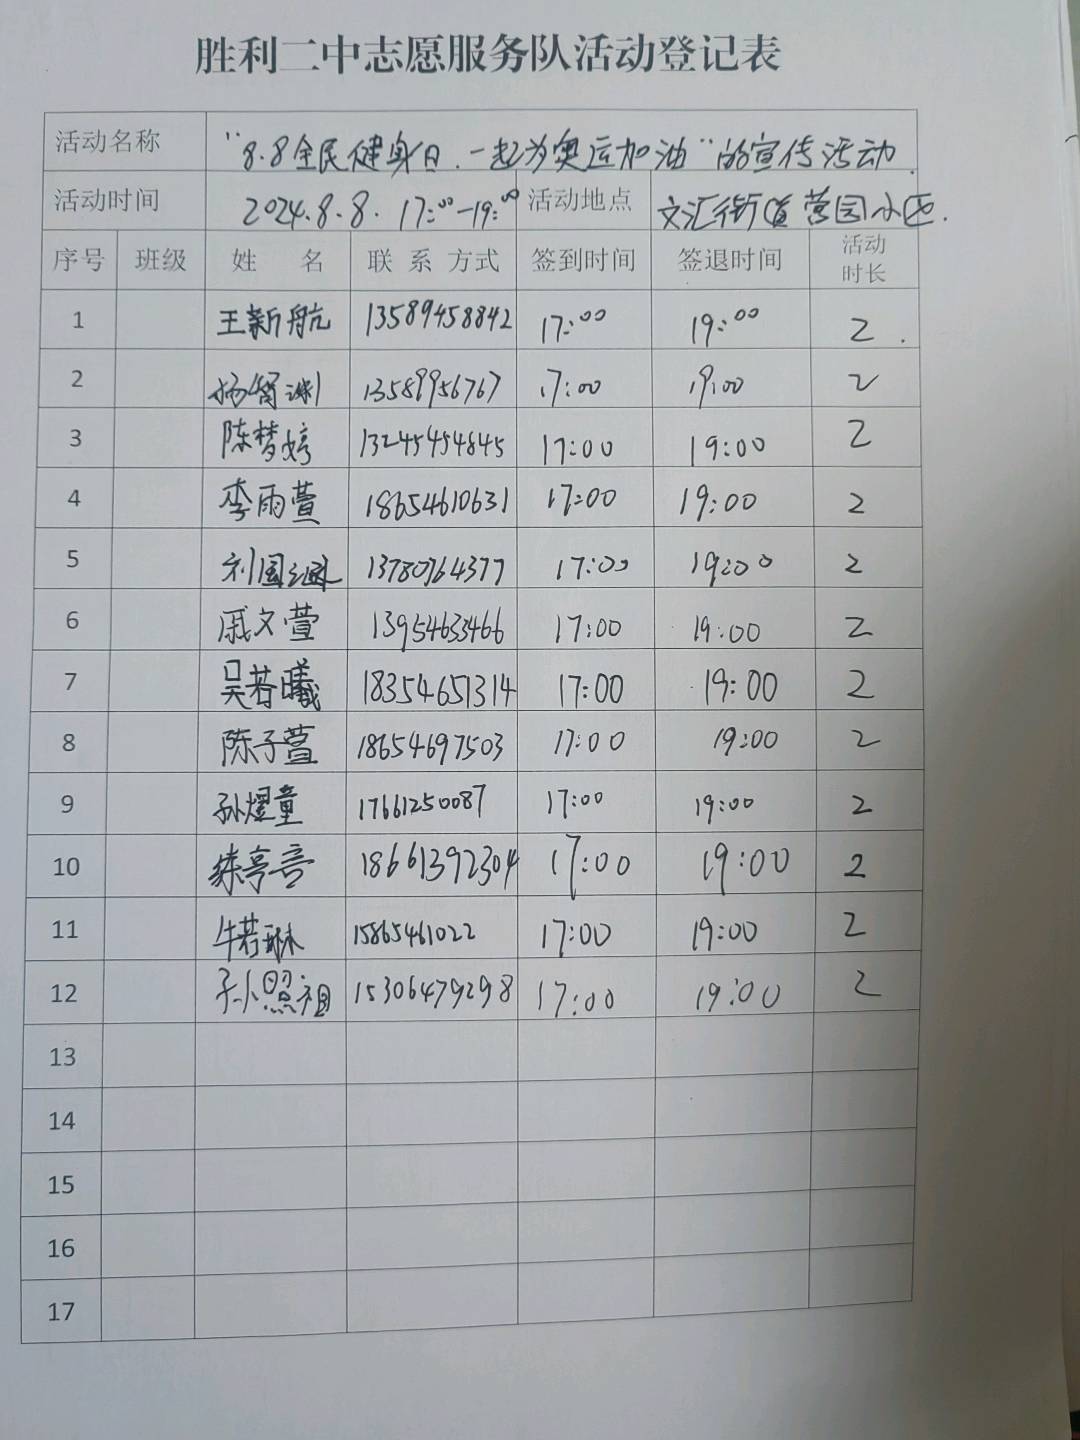 胜利二中志愿服务队活动登记表
活动名称 "8.8全民健身日.一起为奥运加油"的宣传活动.
活动时间 2024.8.8. 17:00-19:00 活动地点 文汇街道营园小区.
序号 班级 姓 名 联 系 方式 签到时间 签退时间 活动时长
1 王新航 13589458842 17:00 19:00 2.
2 杨智渊 13589956767 17:00 19:00 2
3 陈梦婷 13245454845 17:00 19:00 2
4 李雨萱 18654610631 17:00 19:00 2
5 刘国 13780764377 17:00 19:00 2
6 戚文萱 13954633466 17:00 19:00 2
7 吴若曦 18354651314 17:00 19:00 2
8 陈子萱 18654697503 17:00 19:00 2
9 孙熠童 17661250087 17:00 19:00 2
10 18661392304 17:00 19:00 2
11 牛若琳 15865461022 17:00 19:00 2
12 孙照祖 15306479298 17:00 19:00 2
13
14
15
16
17